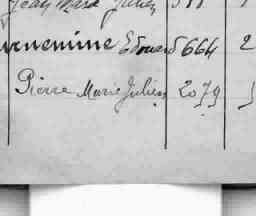 Jean Marie Julien 511
urnenime Edouard 664 2
Pierre Marie Julien 2079